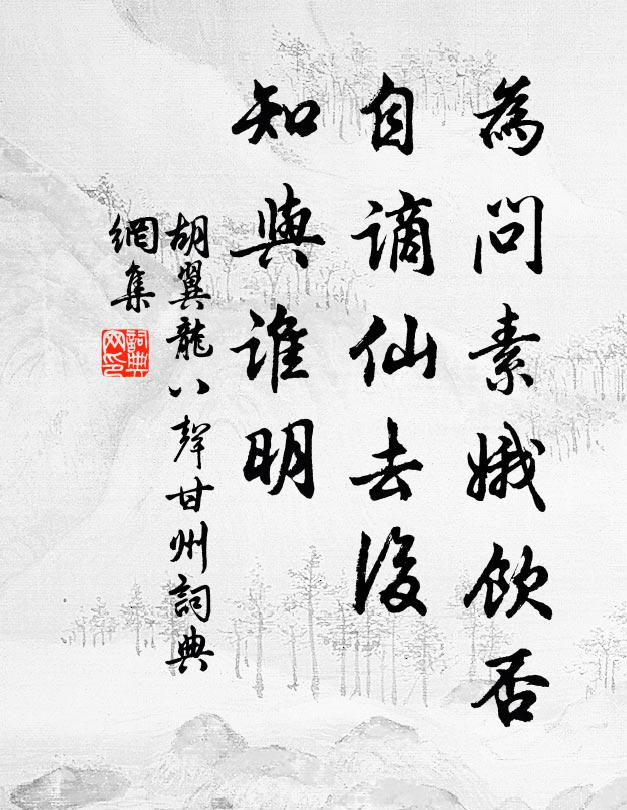 為問素娥飲否
自謫仙去後
知與誰明
胡翼龍八聲甘州詞典
網集
詞典
网印